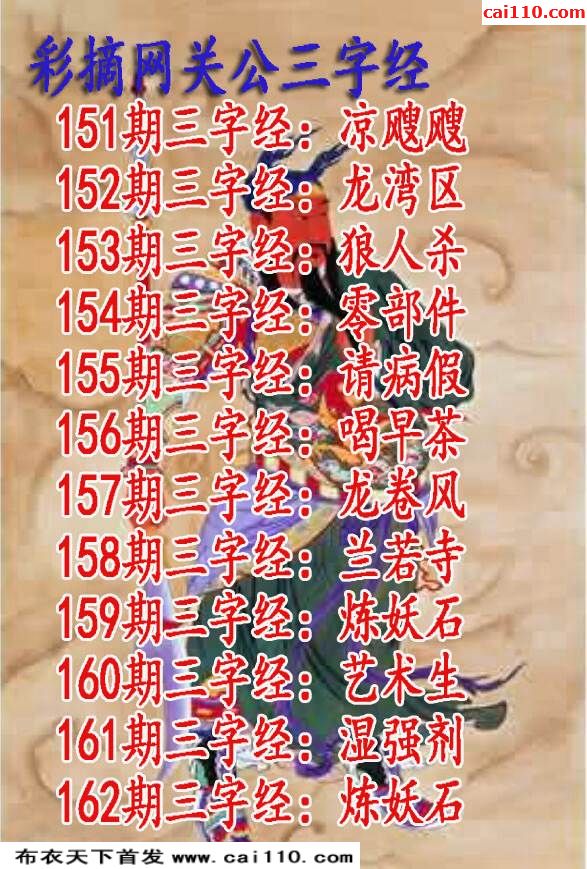 cai110.com
彩摘网关公三字经
151期三字经：凉飕飕
152期三字经：龙湾区
153期三字经：狼人杀
154期三字经：零部件
155期三字经：请病假
156期三字经：喝早茶
157期三字经：龙卷风
158期三字经：兰若寺
159期三字经：炼妖石
160期三字经：艺术生
161期三字经：湿强剂
162期三字经：炼妖石
布衣天下首发 www.cai110.com